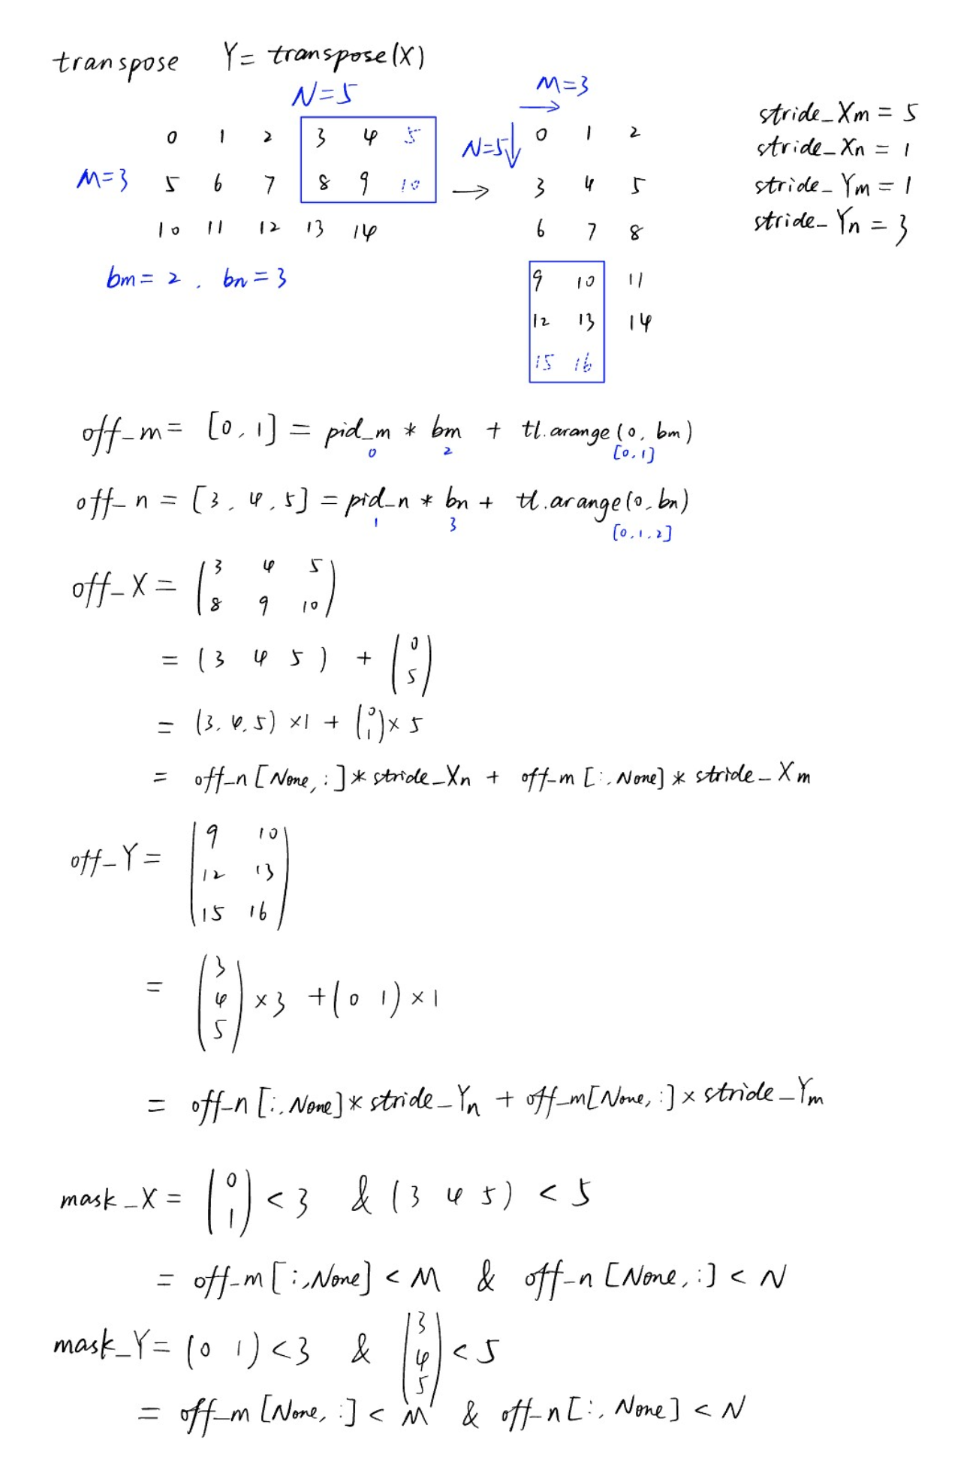 transpose Y= transpose(X)
N=5 M=3
0 1 2 3 4 5 N=5 0 1 2 stride_Xm = 5
stride_Xn = 1
M=3 5 6 7 8 9 10 → 3 4 5 stride_Ym = 1
10 11 12 13 14 6 7 8 stride_Yn = 3
bm = 2 , bn = 3 9 10 11
12 13 14
15 16
off_m = [0, 1] = pid_m * bm + tl.arange(0, bm)
0 2 [0,1]
off_n = [3, 4, 5] = pid_n * bn + tl.arange(0, bn)
1 3 [0,1,2]
off_X = (3 4 5
8 9 10)
= (3 4 5) + (0
5)
= (3, 4, 5) ×1 + (0
1) × 5
= off_n [None, :] * stride_Xn + off_m [:, None] * stride_Xm
off_Y = (9 10
12 13
15 16)
= (3
4
5) × 3 + (0 1) × 1
= off_n [:, None] * stride_Yn + off_m[None, :] × stride_Ym
mask_X = (0
1) < 3 & (3 4 5) < 5
= off_m [:, None] < M & off_n [None, :] < N
mask_Y = (0 1) < 3 & (3
4
5) < 5
= off_m [None, :] < M & off_n [:, None] < N